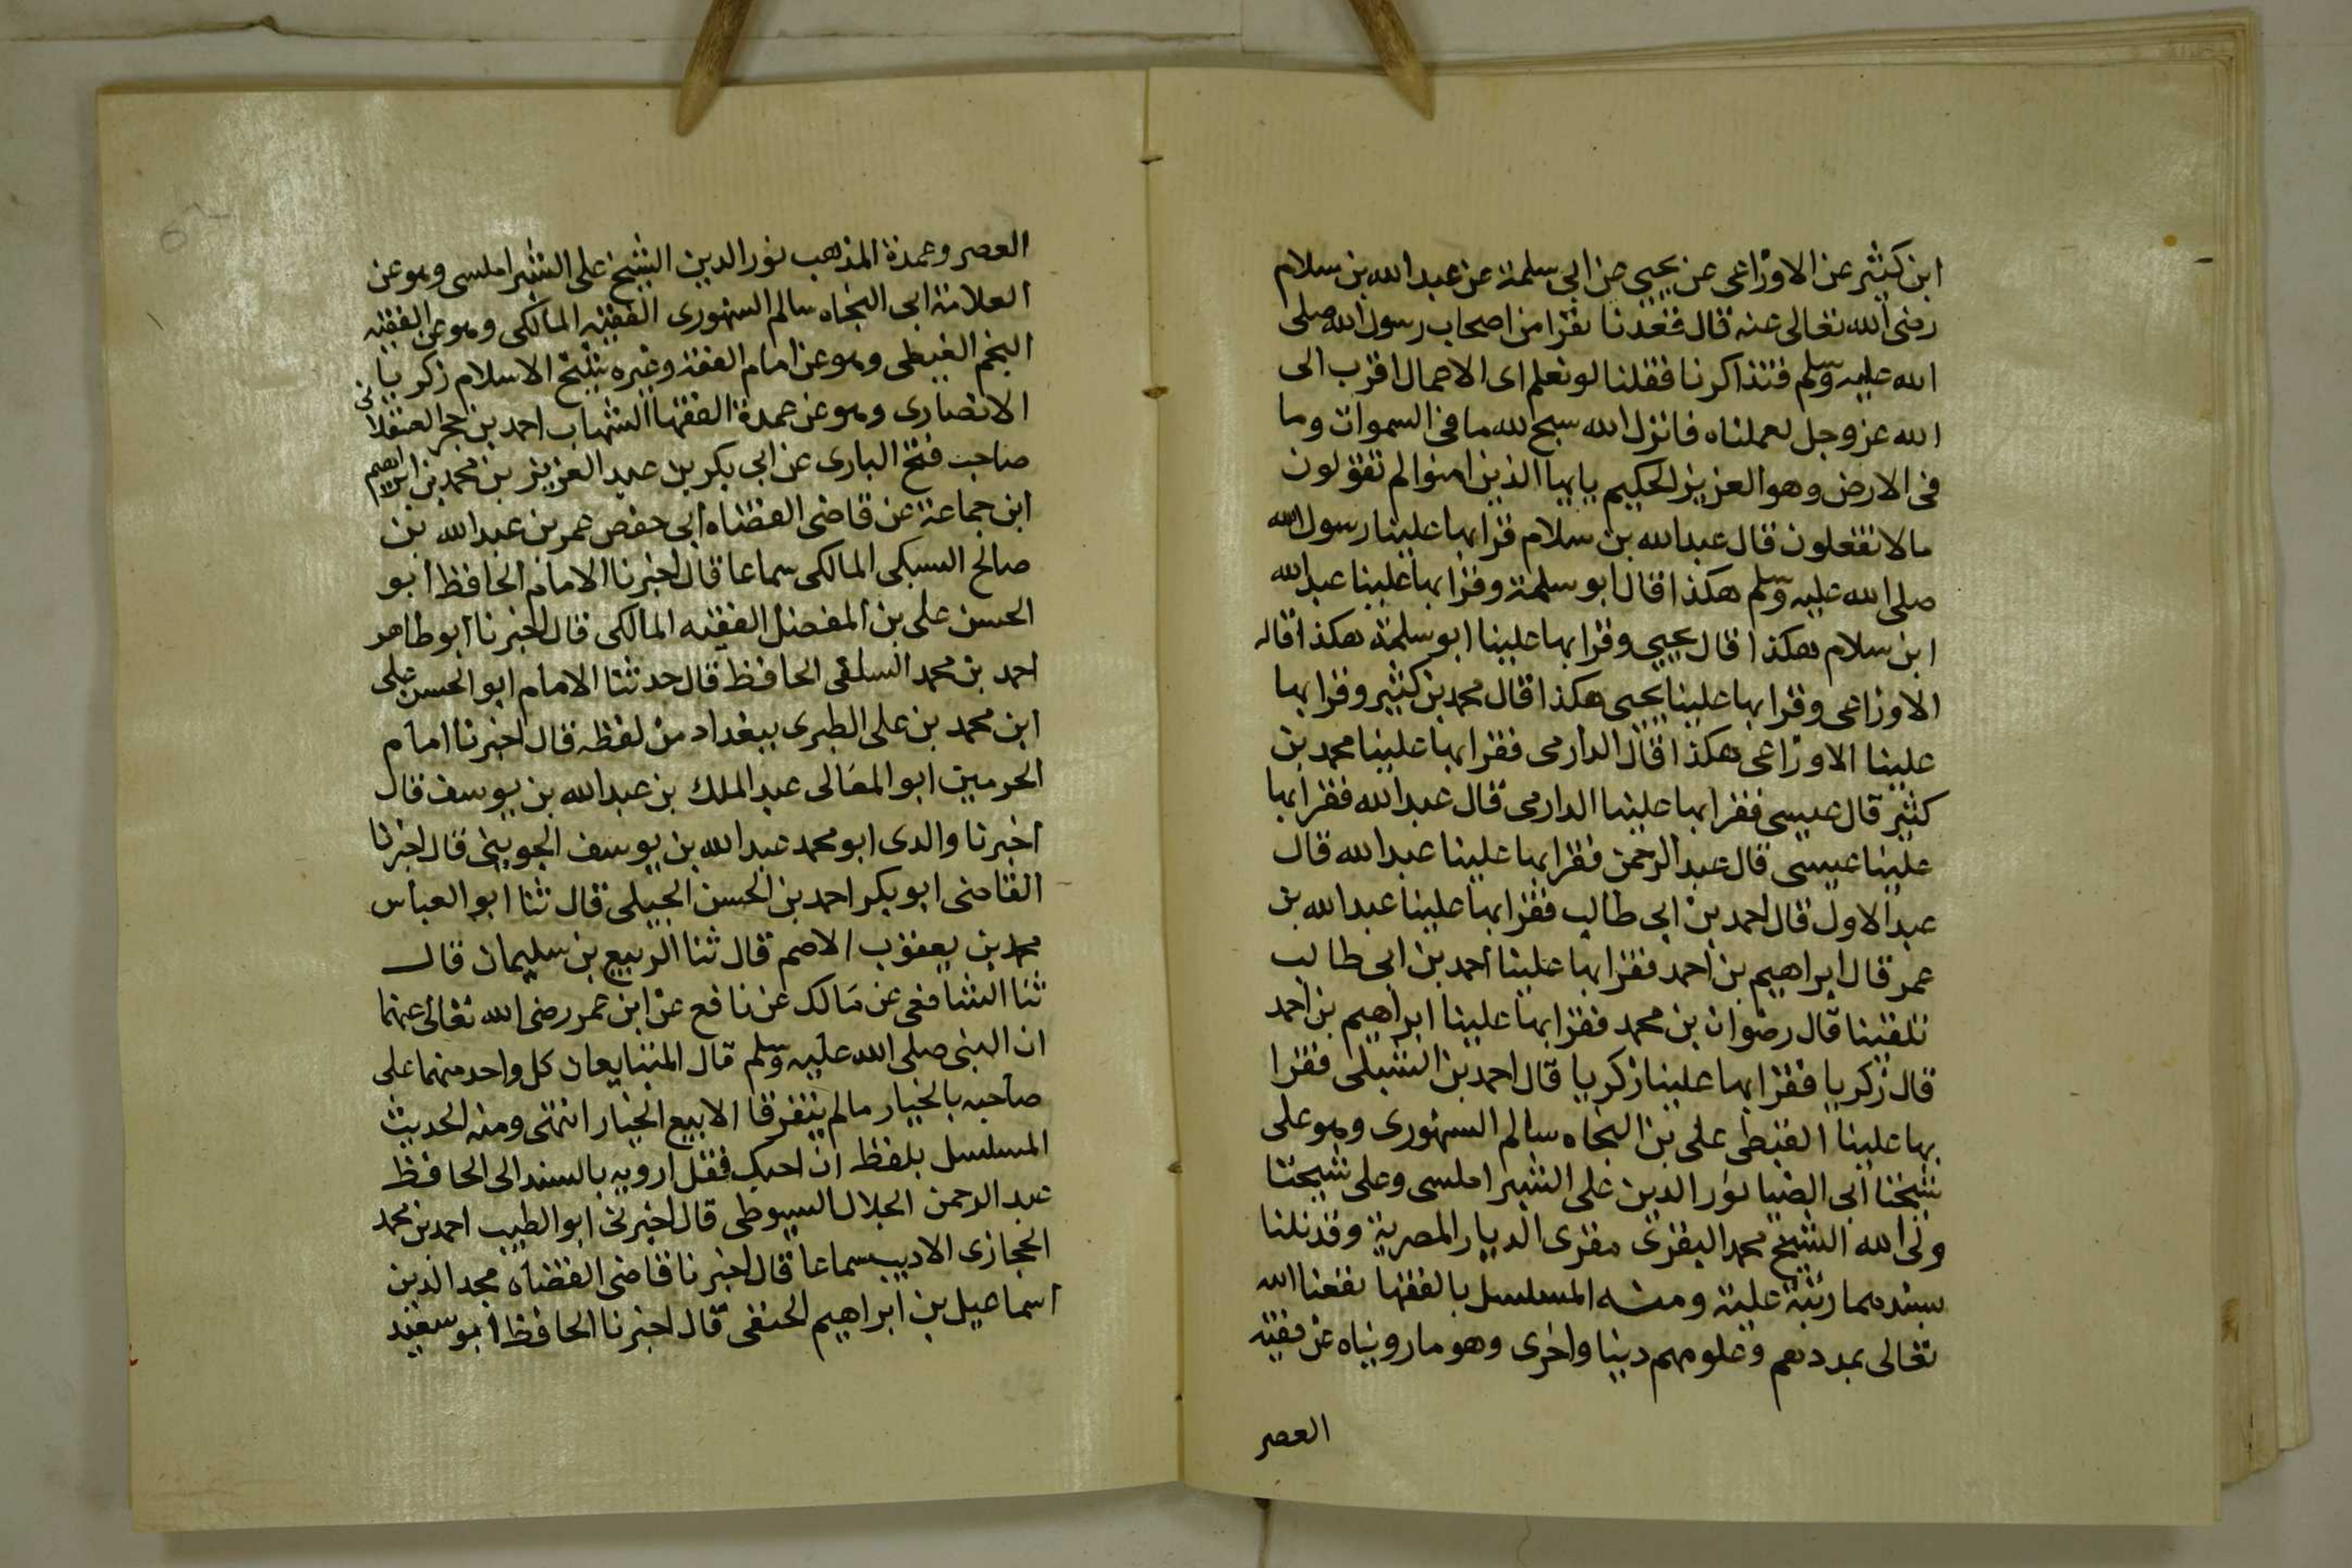 ابن كثير عن الاوزاعى عن يحيى عن ابى سلمة عن عبد الله بن سلام
رضى الله تعالى عنه قال قعدنا نفرا من اصحاب رسول الله صلى
الله عليه وسلم فتذاكرنا فقلنا لو نعلم اى الاعمال اقرب الى
الله عز وجل لعملناه فانزل الله سبح لله ما فى السموات وما
فى الارض وهو العزيز الحكيم يايها الذين امنوا لم تقولون
مالا تفعلون قال عبد الله بن سلام قرابها علينا رسول الله
صلى الله عليه وسلم هكذا قال ابو سلمة وقرابها علينا عبد الله
ابن سلام هكذا قال يحيى وقرابها علينا ابو سلمة هكذا قال
الاوزاعى وقرابها علينا يحيى هكذا قال محمد بن كثير وقرابها
علينا الاوزاعى هكذا قال الدارمى فقرابها علينا محمد بن
كثير قال عيسى فقرابها علينا الدارمى قال عبد الله فقرابها
علينا عيسى قال عبد الرحمن فقرابها علينا عبد الله قال
عبد الاول قال احمد بن ابى طالب فقرابها علينا عبد الله بن
عمر قال ابراهيم بن احمد فقرابها علينا احمد بن ابى طالب
قال رضوان بن محمد فقرابها علينا ابراهيم بن احمد
قال زكريا فقرابها علينا زكريا قال احمد بن الشبلى فقرا
بها علينا الغيطى على بن النجاه سالم السنهورى وهو على
شيخنا ابى الضيا نور الدين على الشبراملسى وعلى شيخنا
ولى الله الشيخ محمد البقرى مقرى الديار المصرية وقد نلنا
بسندهما رتبة علية ومنه المسلسل بالفقها نفعنا الله
تعالى بمددهم وعلومهم دينا واخرى وهو ما رويناه عن فقيه
العصر
العصر وعمدة المذهب نور الدين الشيخ على الشبراملسى وهو عن
العلامة ابى النجاه سالم السنهورى الفقيه المالكى وهو عن الفقيه
النجم الغيطى وهو عن امام الفقه وغيره شيخ الاسلام زكريا
الانصارى وهو عن عمدة الفقها الشهاب احمد بن حجر العسقلانى
صاحب فتح البارى عن ابى بكر بن عبد العزيز بن محمد بن ابراهيم
ابن جماعة عن قاضى القضاه ابى حفص عمر بن عبد الله بن
صالح السبكى المالكى سماعا قال اخبرنا الامام الحافظ ابو
الحسن على بن المفضل الفقيه المالكى قال اخبرنا ابو طاهر
احمد بن محمد السلفى الحافظ قال حدثنا الامام ابو الحسن على
ابن محمد بن على الطبرى ببغداد من لفظه قال اخبرنا امام
الحرمين ابو المعالى عبد الملك بن عبد الله بن يوسف قال
اخبرنا والدى ابو محمد عبد الله بن يوسف الجوينى قال اخبرنا
القاضى ابو بكر احمد بن الحسن الجبلى قال ثنا ابو العباس
محمد بن يعقوب الاصم قال ثنا الربيع بن سليمان قال
ثنا الشافعى عن مالك عن نافع عن ابن عمر رضى الله تعالى عنهما
ان النبى صلى الله عليه وسلم قال المتبايعان كل واحد منهما على
صاحبه بالخيار مالم يتفرقا الا بيع الخيار انتهى ومنه الحديث
المسلسل بلفظ انى احبك فقل ارويه بالسند الى الحافظ
عبد الرحمن الجلال السيوطى قال اخبرنى ابو الطيب احمد بن محمد
الحجازى الاديب سماعا قال اخبرنا قاضى القضاه مجد الدين
اسماعيل بن ابراهيم الحنفى قال اخبرنا الحافظ ابو سعيد